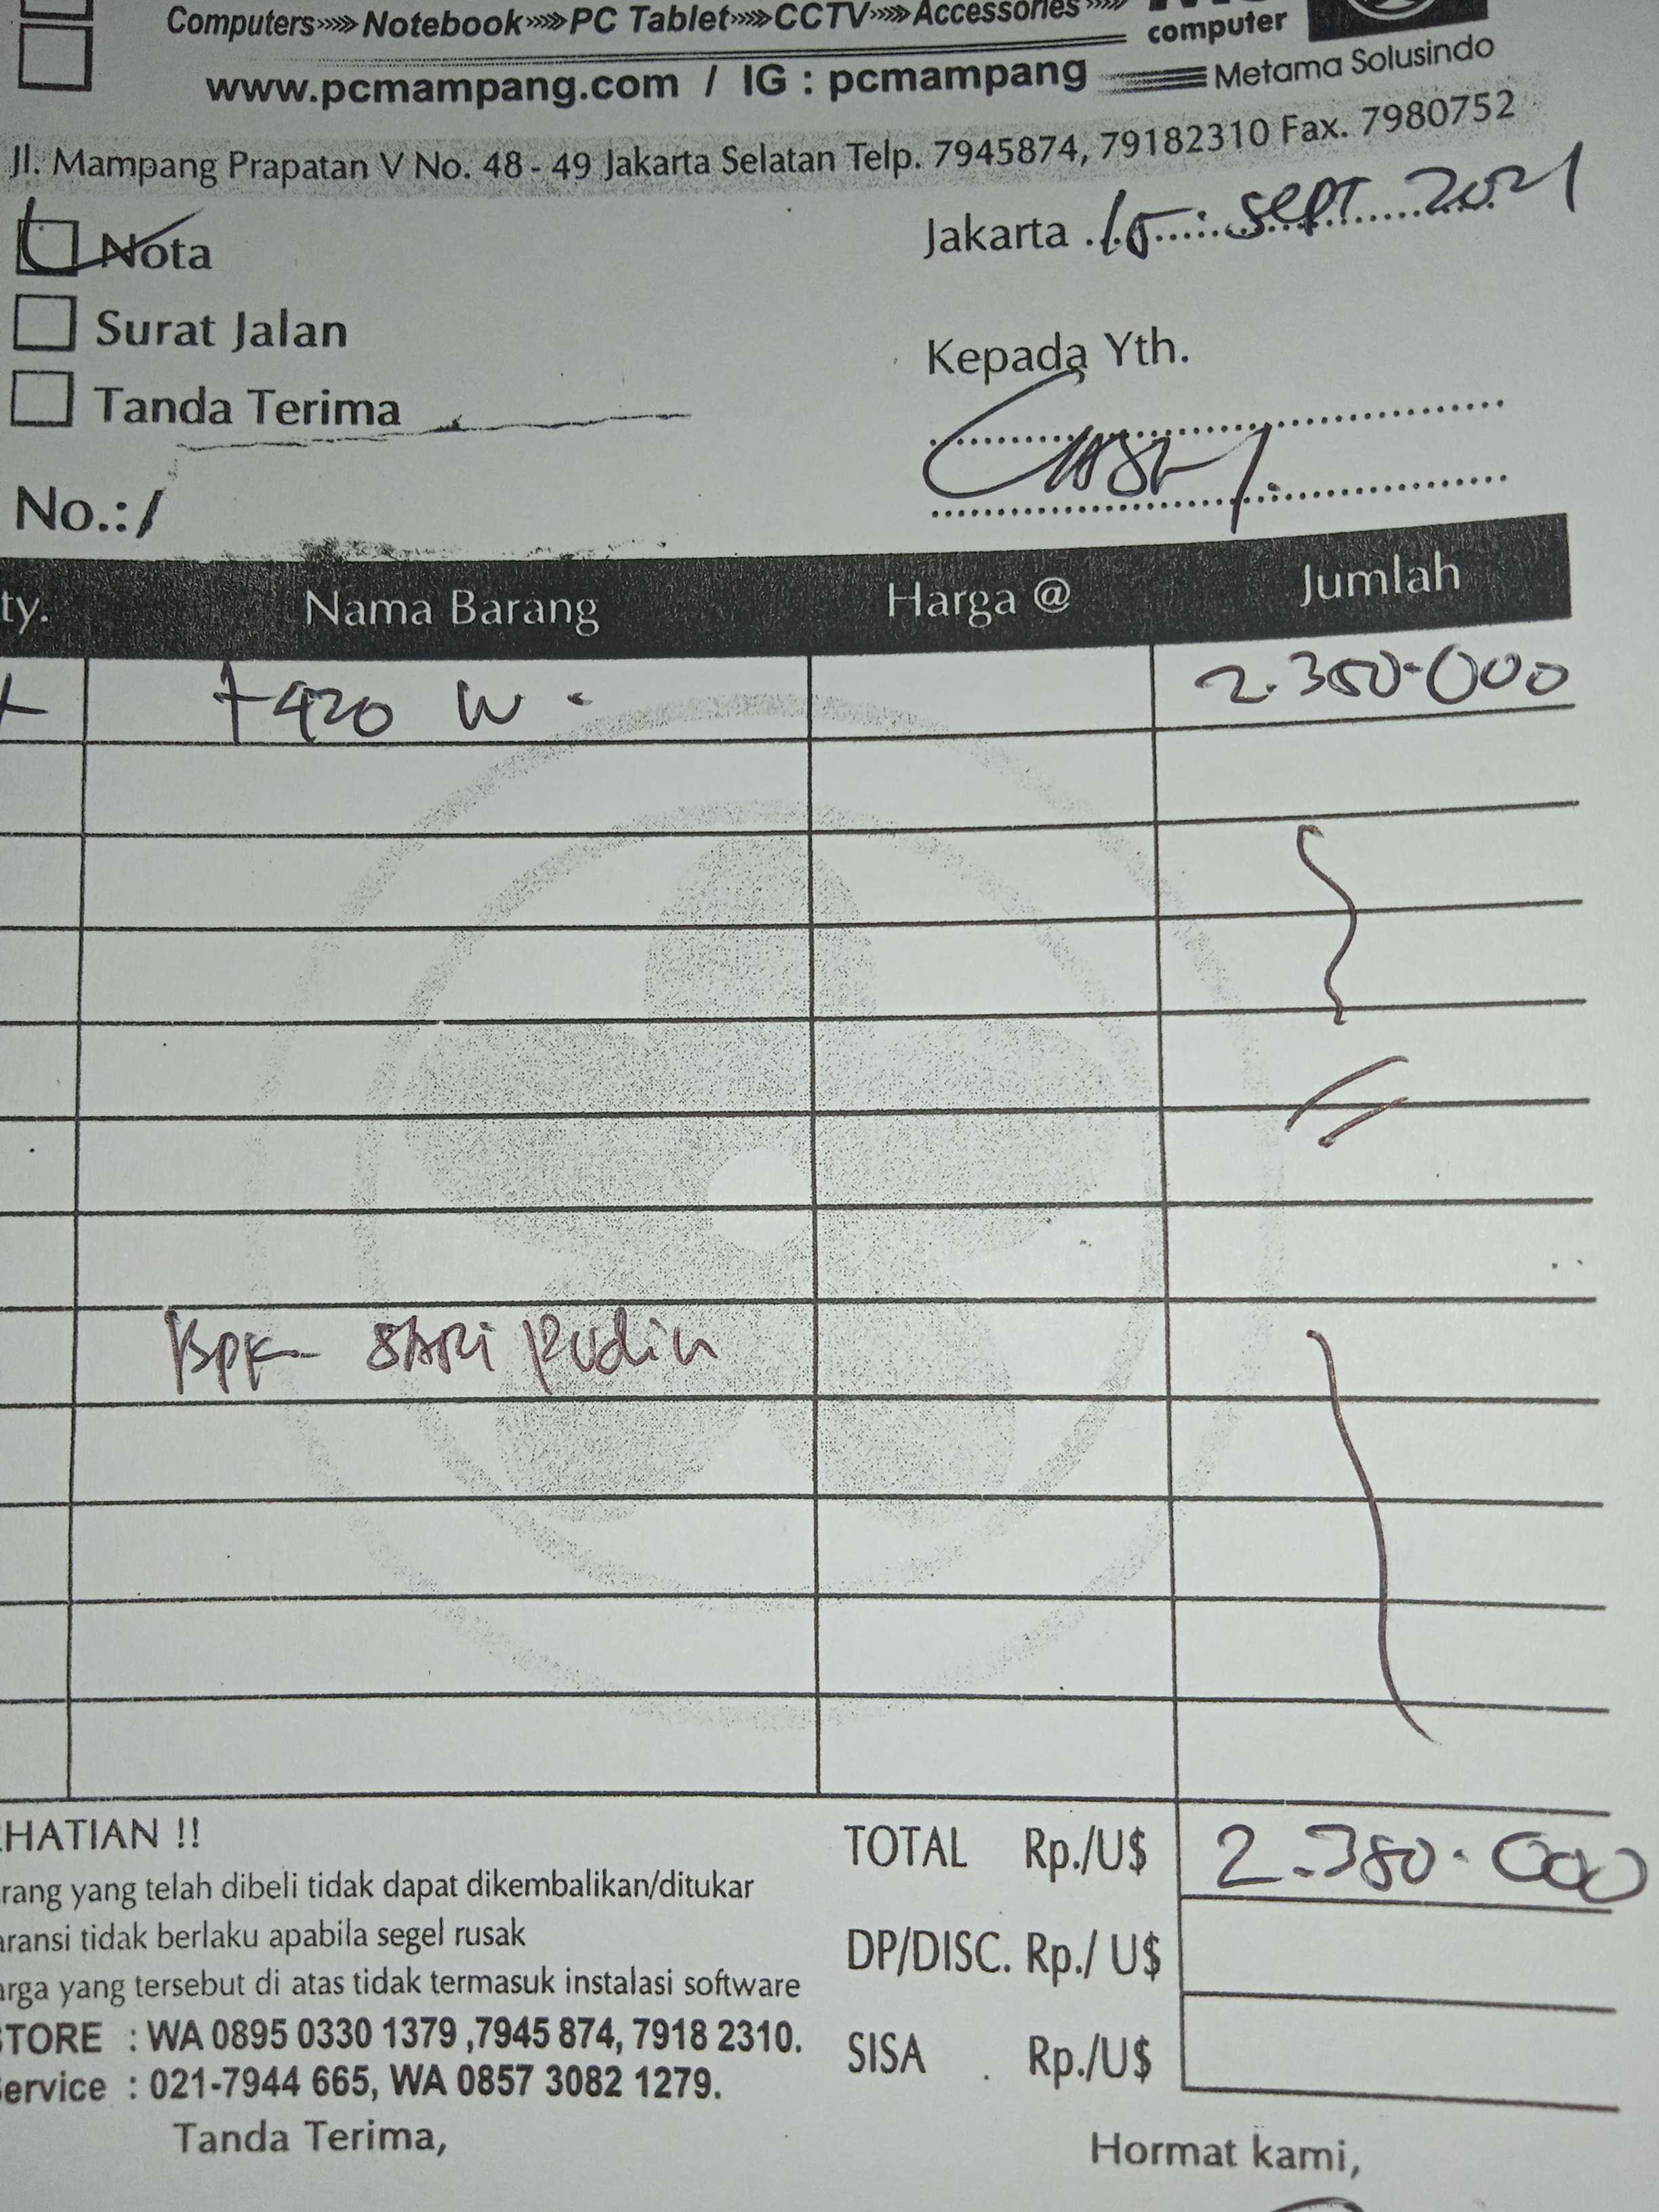 Computers»»»Notebook»»»PC Tablet»»»CCTV»»»Accessories»»»
computer
www.pcmampang.com / IG : pcmampang
Metama Solusindo
Jl. Mampang Prapatan V No. 48 - 49 Jakarta Selatan Telp. 7945874, 79182310 Fax. 7980752
Nota
Jakarta 15. sept 2021
Surat Jalan
Kepada Yth.
Tanda Terima
No.:
ty. Nama Barang Harga @ Jumlah
420 W. 000
BPK SARi Rudin
HATIAN !!
TOTAL Rp./U$ 2.380.000
rang yang telah dibeli tidak dapat dikembalikan/ditukar
aransi tidak berlaku apabila segel rusak
DP/DISC. Rp./ U$
arga yang tersebut di atas tidak termasuk instalasi software
STORE : WA 0895 0330 1379 ,7945 874, 7918 2310.
SISA Rp./U$
Service : 021-7944 665, WA 0857 3082 1279.
Tanda Terima,
Hormat kami,